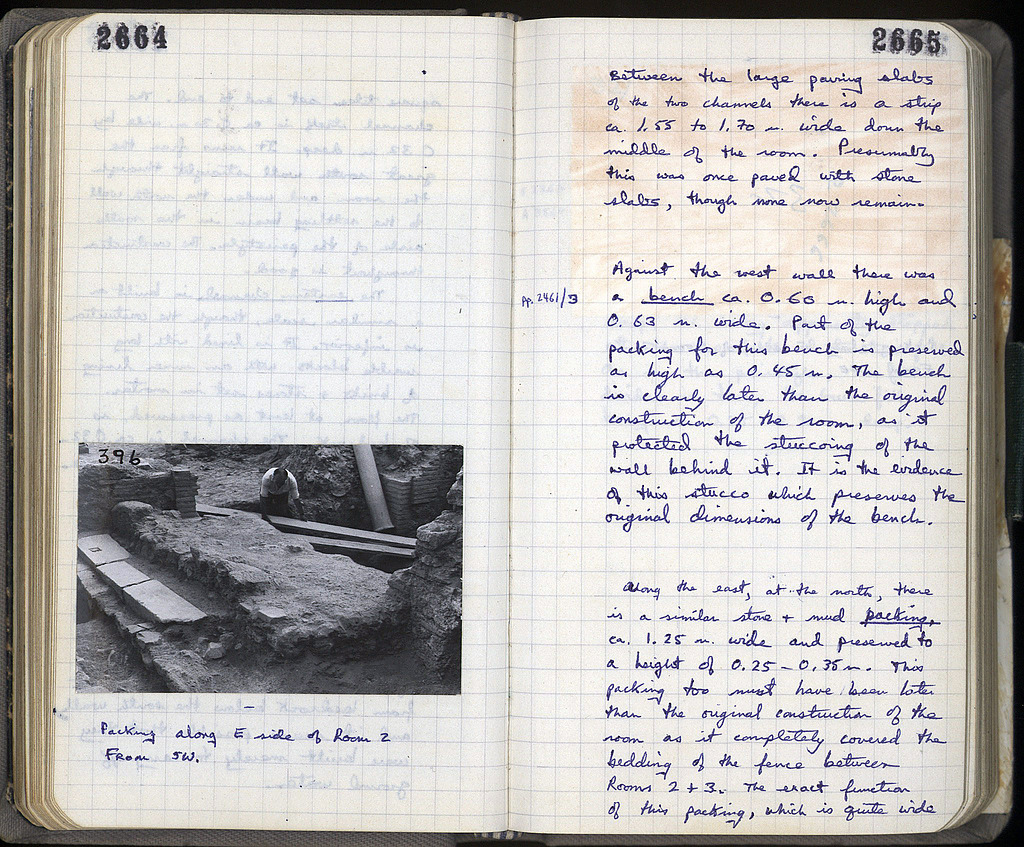 2664
396
Packing along E side of Room 2
From SW.
2665
Between the large paving slabs
of the two channels there is a strip
ca. 1.55 to 1.70 m. wide down the
middle of the room. Presumably
this was once paved with stone
slabs, though none now remain.
Against the west wall there was
pp. 2461/3
a bench ca. 0.60 m. high and
0.63 m. wide. Part of the
packing for this bench is preserved
as high as 0.45 m. The bench
is clearly later than the original
construction of the room, as it
protected the stuccoing of the
wall behind it. It is the evidence
of this stucco which preserves the
original dimensions of the bench.
Along the east, at the north, there
is a similar stone + mud packing,
ca. 1.25 m. wide and preserved to
a height of 0.25 - 0.35 m. This
packing too must have been later
than the original construction of the
room as it completely covered the
bedding of the fence between
Rooms 2 + 3. The exact function
of this packing, which is quite wide